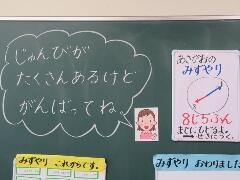 じゅんびが
たくさんあるけど
がんばってね。
あさがおの
みずやり
8じ5ふん
までに もどるよ。
→ せきにつく。
みずやり これからです。
みずやり おわりました